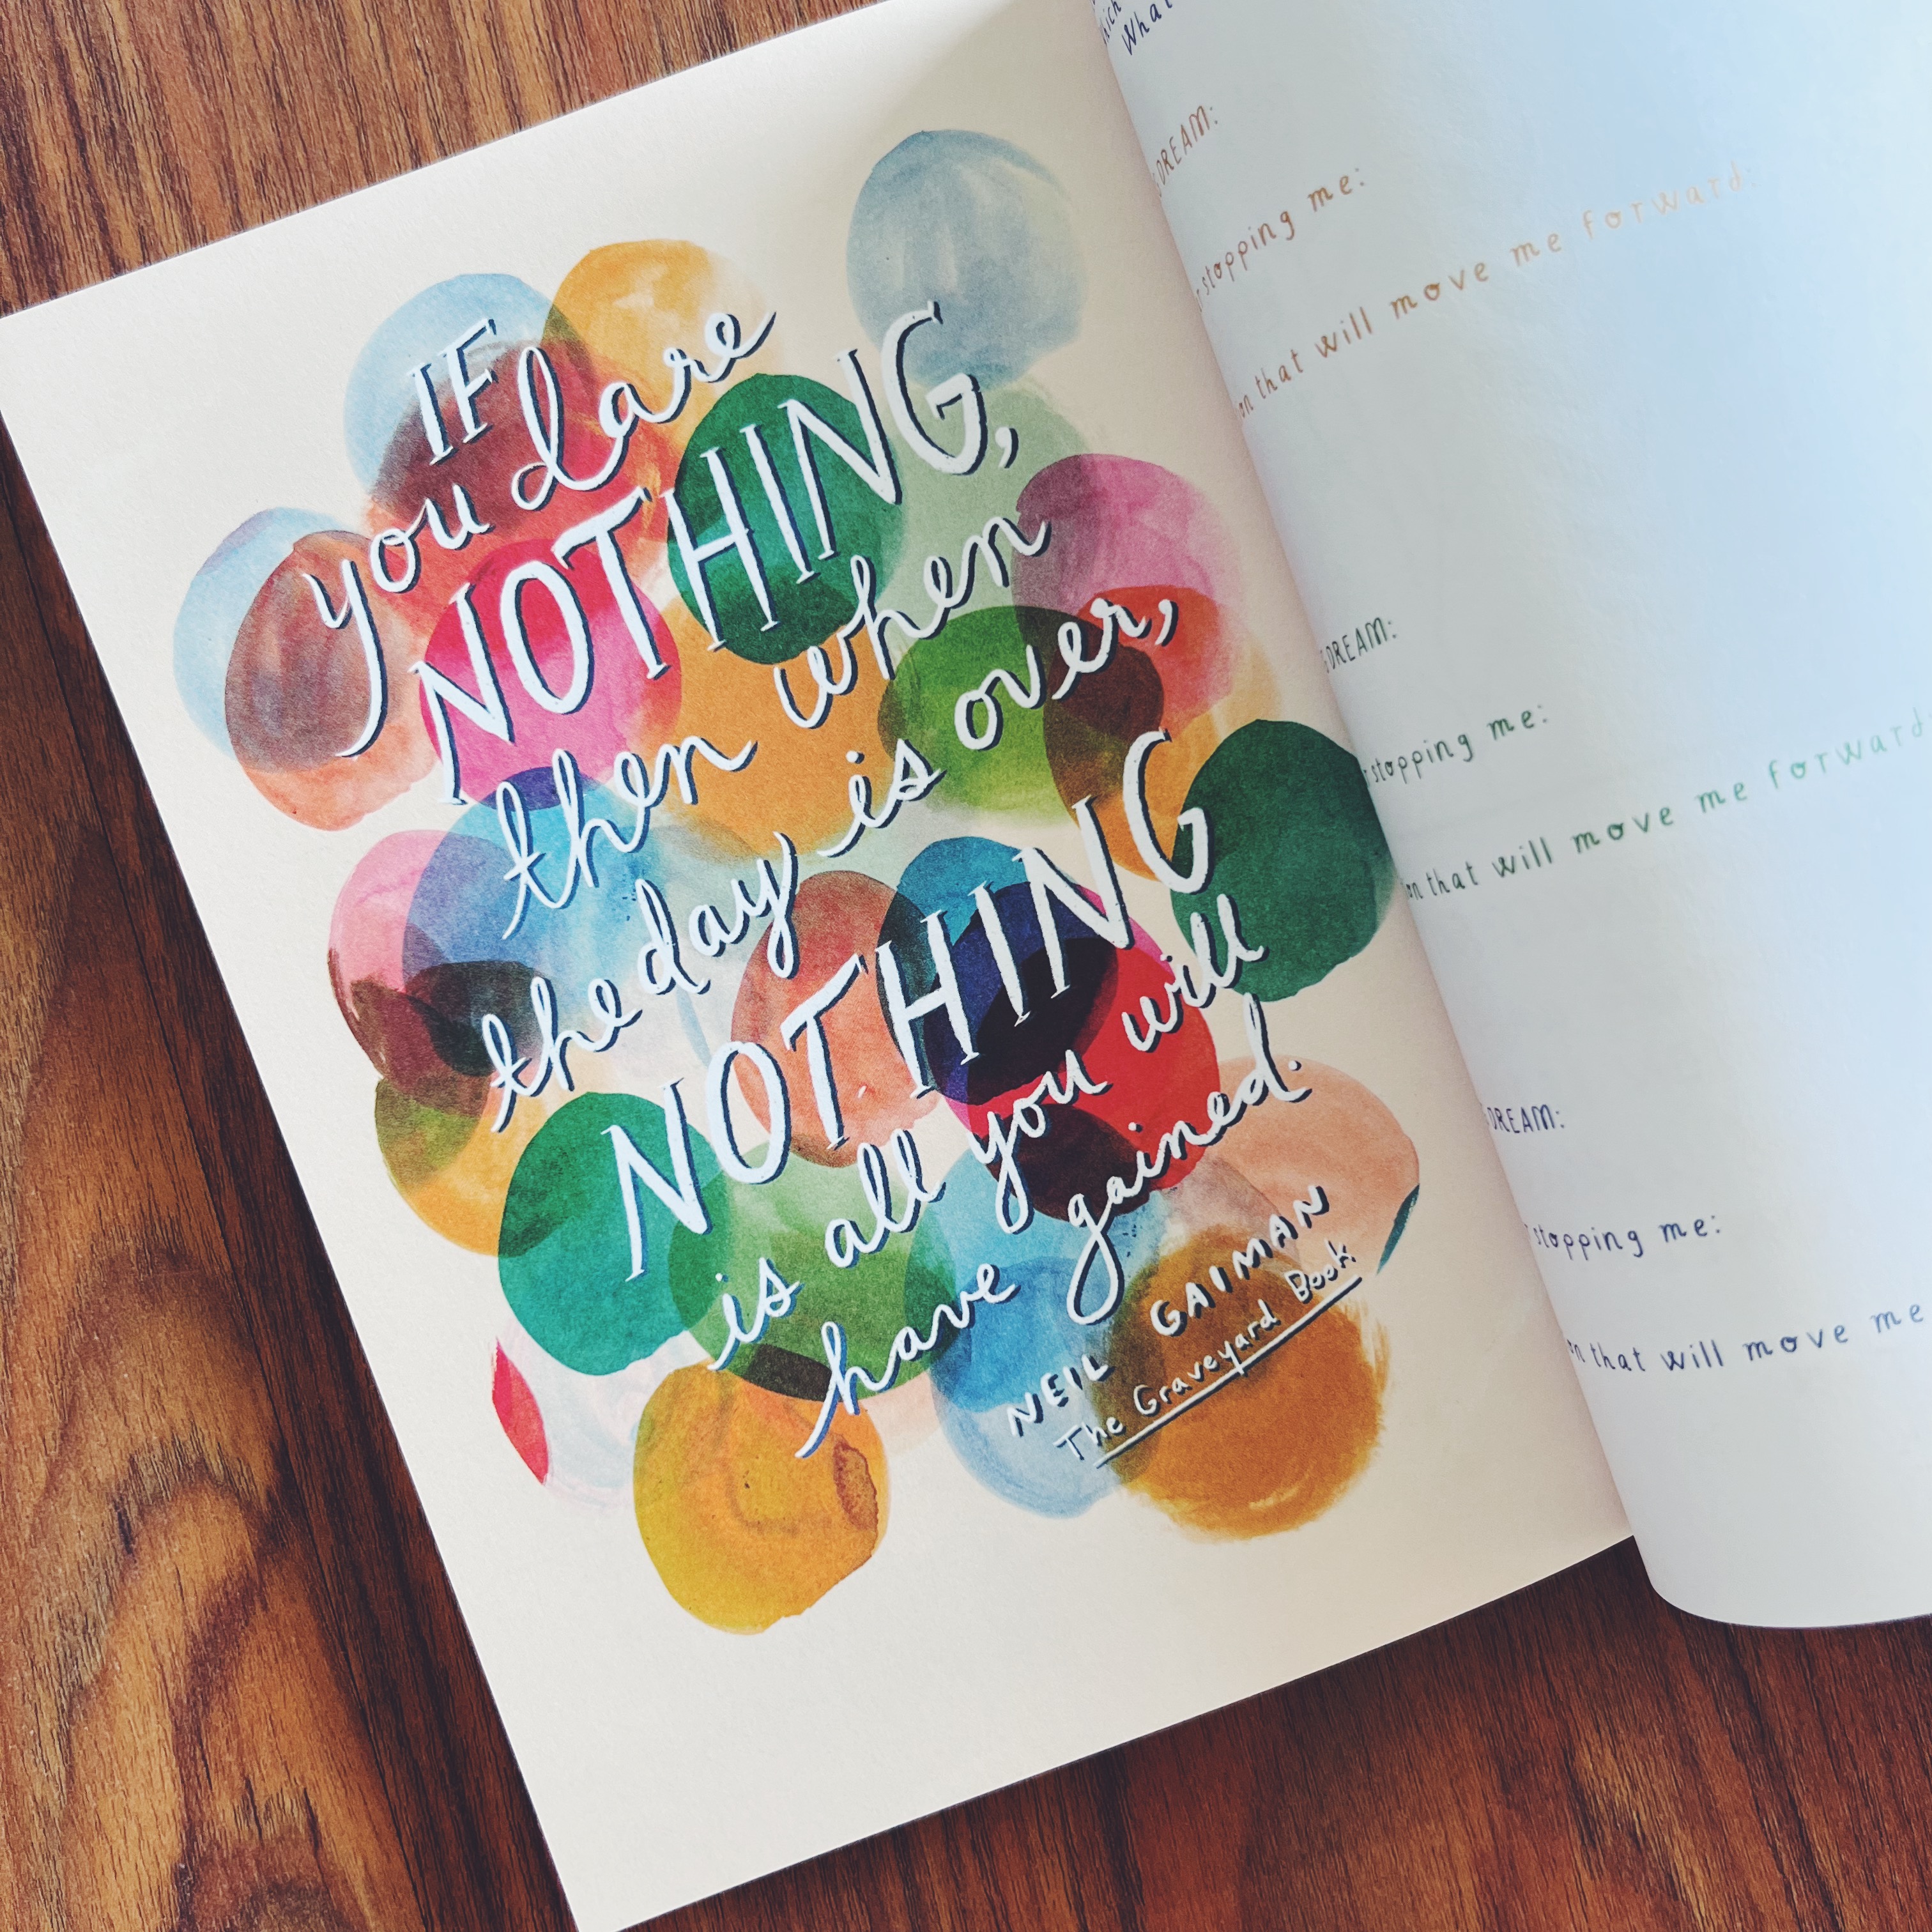 IF
you dare
NOTHING,
then when
the day is over,
NOTHING
is all you will
have gained.
NEIL GAIMAN
The Graveyard Book
What
DREAM:
stopping me:
that will move me forward:
DREAM:
stopping me:
that will move me forward
DREAM:
stopping me:
that will move me